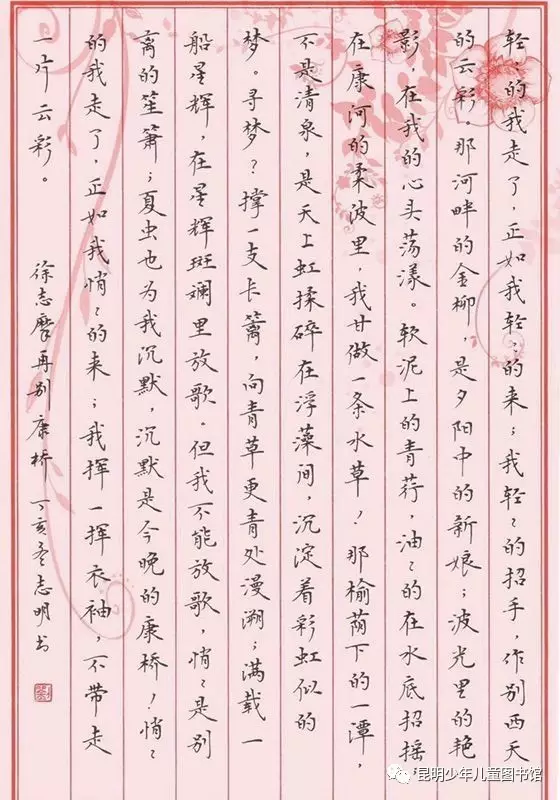 轻〻的我走了，正如我轻〻的来；我轻〻的招手，作别西天
的云彩。那河畔的金柳，是夕阳中的新娘；波光里的艳
影，在我的心头荡漾。软泥上的青荇，油〻的在水底招摇；
在康河的柔波里，我甘做一条水草！那榆荫下的一潭，
不是清泉，是天上虹揉碎在浮藻间，沉淀着彩虹似的
梦。寻梦？撑一支长篙，向青草更青处漫溯；满载一
船星辉，在星辉斑斓里放歌。但我不能放歌，悄〻是别
离的笙箫；夏虫也为我沉默，沉默是今晚的康桥！悄〻
的我走了，正如我悄〻的来；我挥一挥衣袖，不带走
一片云彩。
徐志摩再别康桥 丁亥冬志明书
昆明少年儿童图书馆